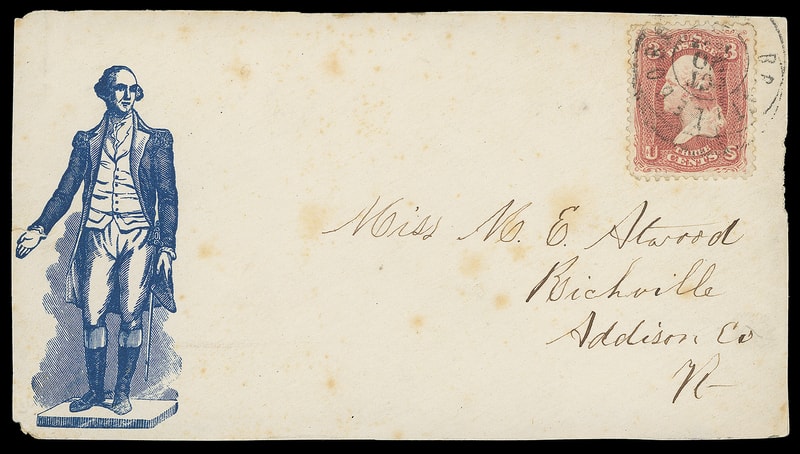 3 3
U THREE S
CENTS
Miss M. E. Atwood
Richville
Addison Co
Vt